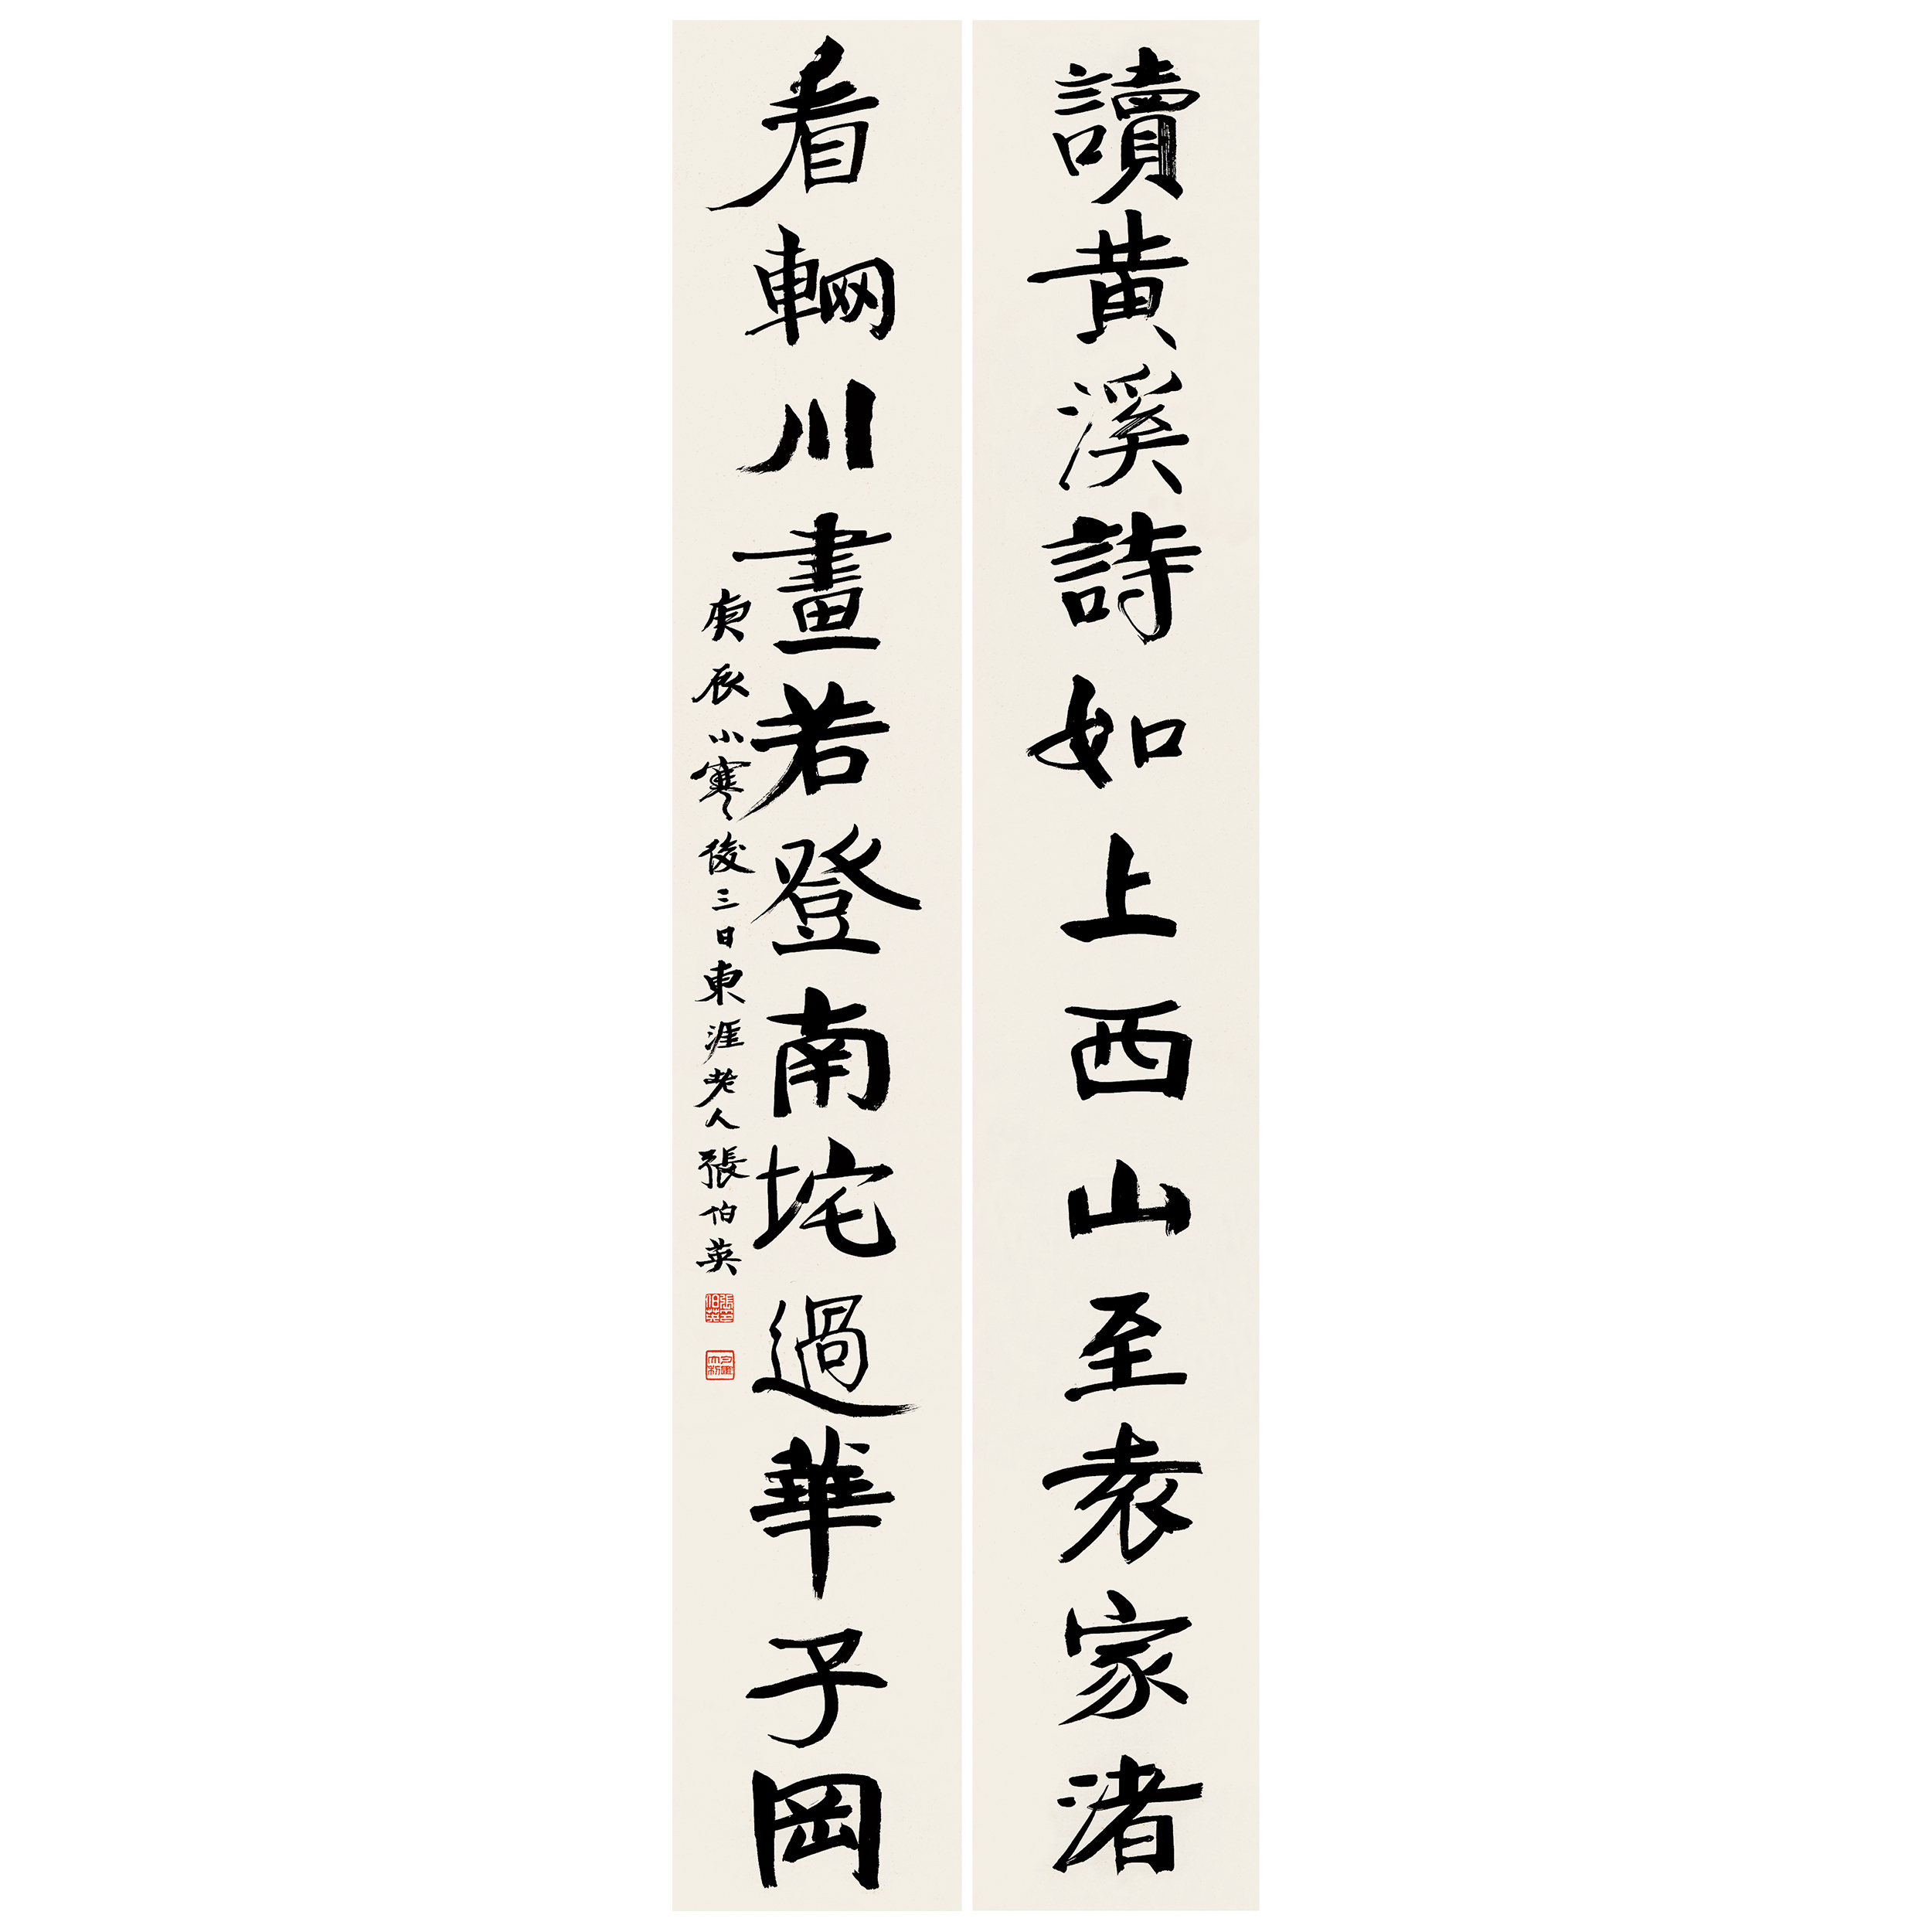 讀黄溪詩如上西山至袁家渚
看輞川畫若登南垞過華子岡
庚辰小寒後三日東涯老人張伯英